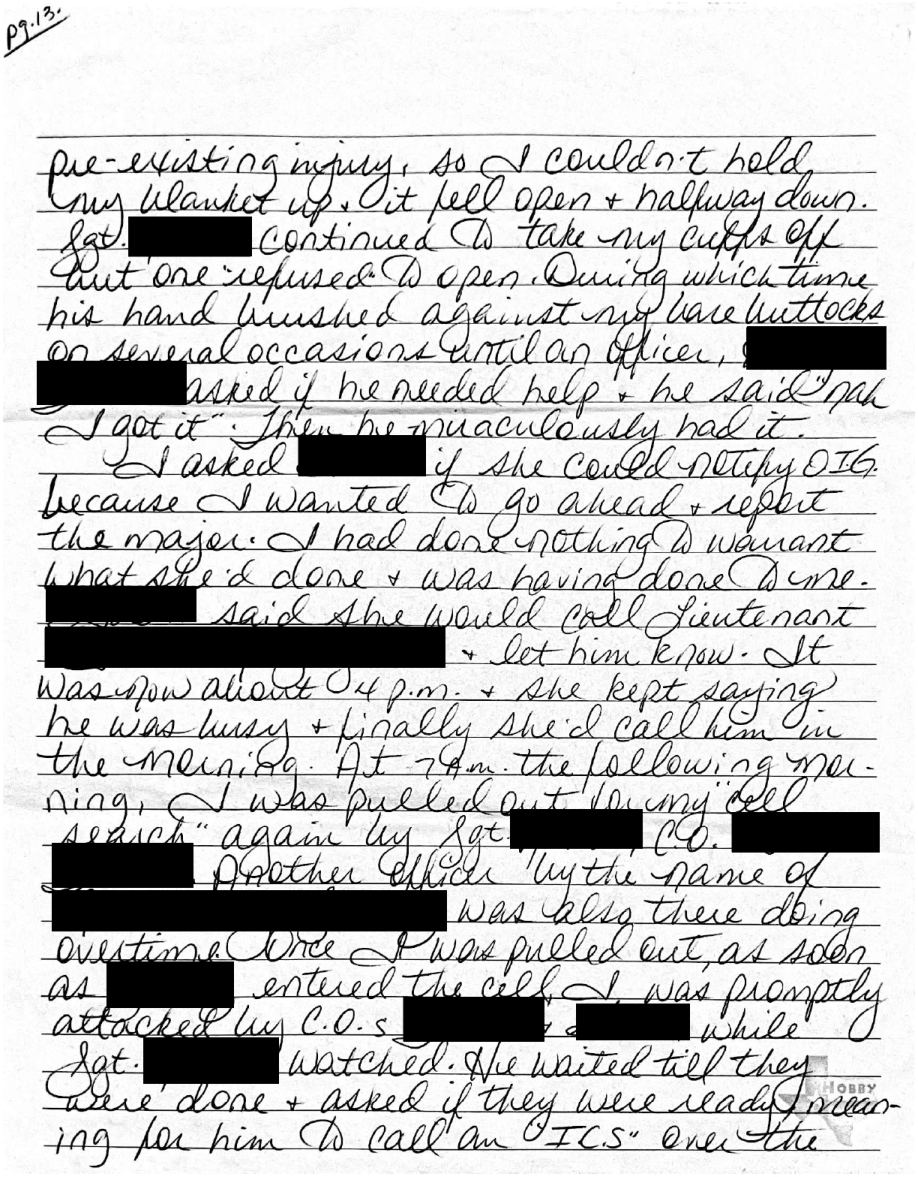 pg.13.
pre-existing injury, so I couldn't hold
my blanket up & it fell open & halfway down.
Sgt. continued to take my cuffs off
but one "refused" to open. During which time
his hand brushed against my bare buttocks
on several occasions until an officer,
asked if he needed help & he said "nah
I got it". Then he miraculously had it.
I asked if she could notify OIG.
because I wanted to go ahead & report
the major. I had done nothing to warrant
what she'd done & was having done to me.
said she would call Lieutenant
& let him know. It
was now about 4 p.m. & she kept saying
he was busy & finally she'd call him in
the morning. At 7 a.m. the following mor-
ning, I was pulled out for my "cell
search" again by Sgt. C.O.
Another officer by the name of
was also there doing
overtime. Once I was pulled out, as soon
as entered the cell, I was promptly
attacked by C.O.s & while
Sgt. watched. He waited till they
were done & asked if they were ready mean-
ing for him to call an "ICS" over the
HOBBY